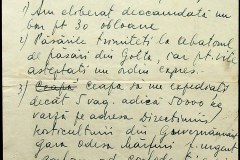 1) Am eliberat deocamdată un
bon pt 30 obloane.
2) Păsările trimiteți la abatorul
de păsări din Golta, iar pt. vite
așteptați un ordin expres.
3) Ceapă Ceapa sa nu expediați
decât 5 vag. adică 50000 kg
varză pe adresa Direcțiunii
horticulturii din Guvernământ
gara odesa Mărfuri f. urgent